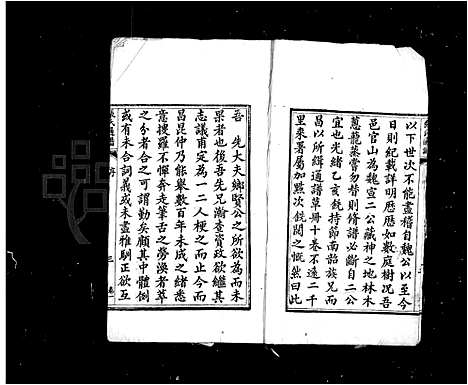 以下世次不能盡稽自魏公以至今
日則紀載詳明歷歷如數庭樹况吾
邑官山為魏宣二公藏神之地林木
蔥蘢蒸嘗勿替則脩譜必斷自二公
宜也光緒乙亥餞持節南韶族兄昆
昌以所緝通譜草册十卷不遠二千
里來署屬加㸃次銑閱之慨然曰此
吾 先大夫鄉賢公之所欲為而未
果者也後吾兄瀚查資政欲繼其
志議甫定為一二人梗之而止今而
昌昆仲乃能舉數百年未成之緒悉
意搜羅不憚奔走筆舌之勞渙者萃
之分者合之可謂勤矣顧其中體例
或有未合詞義或未盡雅馴正欲互